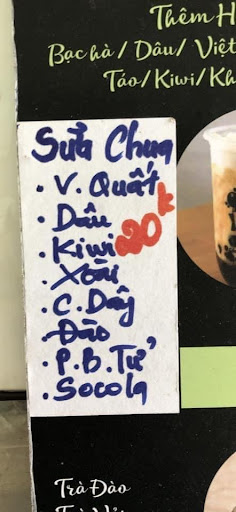 Thêm H
Bạc hà / Dâu / Việt
Táo / Kiwi / Kh
Sữa Chua
. V. Quất
. Dâu
. Kiwi
20k
. Xoài
. C. Dây
. Đào
. P. B. Tử
. Socola
Trà Đào